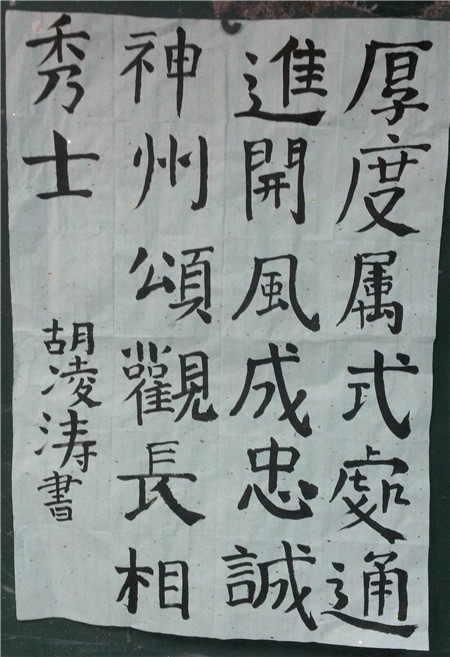 厚度属式處通
進開風成忠誠
神州頌觀長相
秀士
胡凌涛書